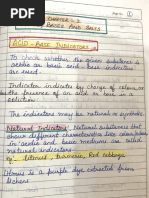 CHAPTER - 2
BASES AND SALTS
ACID - BASE INDICATORS
To check whether the given substance is
acidic or basic acid - base indicators
are used.
Indicator indicates by change of colour, or
the presence of an acid or base in a
solution.
The indicators may be natural or synthetic
Natural Indicators: Natural substances that
shows different characteristics when mixed
in acidic and basic mediums are called
natural indicators.
eg:- Litmus, turmeric, Red cabbage
Litmus is a purple dye extracted from
lichens